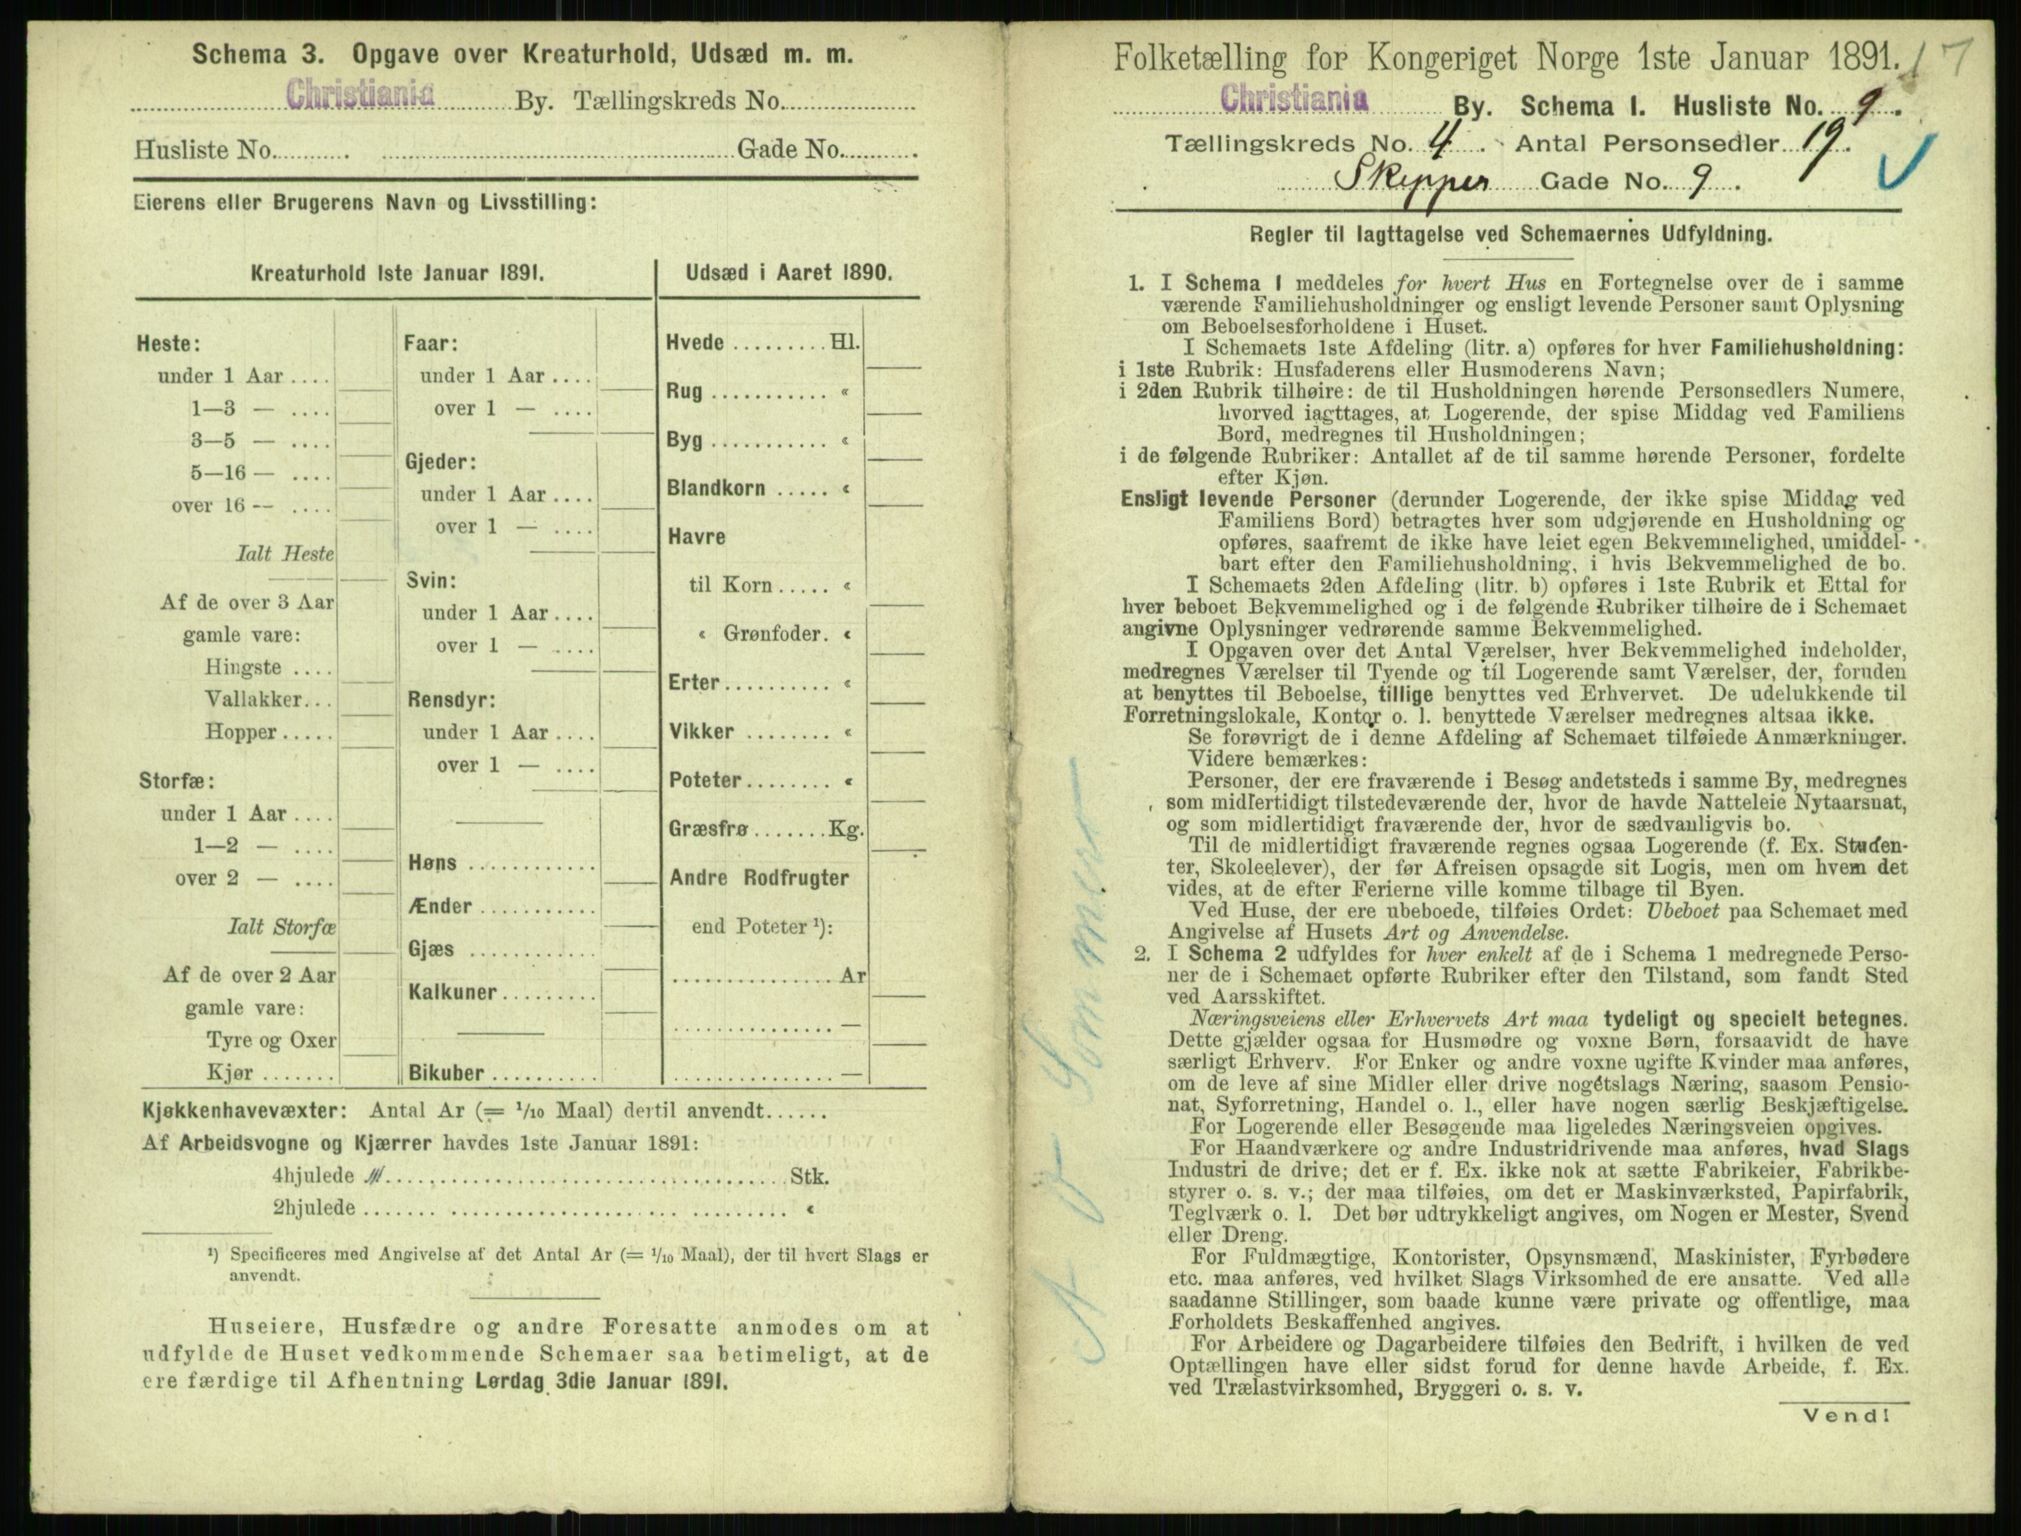 Schema 3. Opgave over Kreaturhold, Udsæd m. m.
Christiania By. Tællingskreds No.
Husliste No. Gade No.
Eierens eller Brugerens Navn og Livsstilling:
Kreaturhold 1ste Januar 1891.
Heste:
under 1 Aar
1—3 —
3—5 —
5—16 —
over 16 —
Ialt Heste
Af de over 3 Aar
gamle vare:
Hingste
Vallakker
Hopper
Storfæ:
under 1 Aar
1—2 —
over 2 —
Ialt Storfæ
Af de over 2 Aar
gamle vare:
Tyre og Oxer
Kjør
Faar:
under 1 Aar
over 1 —
Gjeder:
under 1 Aar
over 1 —
Svin:
under 1 Aar
over 1 —
Rensdyr:
under 1 Aar
over 1 —
Høns
Ænder
Gjæs
Kalkuner
Bikuber
Udsæd i Aaret 1890.
Hvede Hl.
Rug «
Byg «
Blandkorn «
Havre
til Korn «
« Grønfoder. «
Erter «
Vikker «
Poteter «
Græsfrø Kg.
Andre Rodfrugter
end Poteter ¹):
Ar
—
—
Kjøkkenhavevæxter: Antal Ar (= 1/10 Maal) dertil anvendt
Af Arbeidsvogne og Kjærrer havdes 1ste Januar 1891:
4hjulede Stk.
2hjulede «
¹) Specificeres med Angivelse af det Antal Ar (= 1/10 Maal), der til hvert Slags er
anvendt.
Huseiere, Husfædre og andre Foresatte anmodes om at
udfylde de Huset vedkommende Schemaer saa betimeligt, at de
ere færdige til Afhentning Lørdag 3die Januar 1891.
Folketælling for Kongeriget Norge 1ste Januar 1891. 17
Christiania By. Schema 1. Husliste No. 9.
Tællingskreds No. 4. Antal Personsedler 19.
Skipper Gade No. 9.
Regler til Iagttagelse ved Schemaernes Udfyldning.
1. I Schema 1 meddeles for hvert Hus en Fortegnelse over de i samme
værende Familiehusholdninger og ensligt levende Personer samt Oplysning
om Beboelsesforholdene i Huset.
I Schemaets 1ste Afdeling (litr. a) opføres for hver Familiehusholdning:
i 1ste Rubrik: Husfaderens eller Husmoderens Navn;
i 2den Rubrik tilhøire: de til Husholdningen hørende Personsedlers Numere,
hvorved iagttages, at Logerende, der spise Middag ved Familiens
Bord, medregnes til Husholdningen;
i de følgende Rubriker: Antallet af de til samme hørende Personer, fordelte
efter Kjøn.
Ensligt levende Personer (derunder Logerende, der ikke spise Middag ved
Familiens Bord) betragtes hver som udgjørende en Husholdning og
opføres, saafremt de ikke have leiet egen Bekvemmelighed, umiddel-
bart efter den Familiehusholdning, i hvis Bekvemmelighed de bo.
I Schemaets 2den Afdeling (litr. b) opføres i 1ste Rubrik et Ettal for
hver beboet Bekvemmelighed og i de følgende Rubriker tilhøire de i Schemaet
angivne Oplysninger vedrørende samme Bekvemmelighed.
I Opgaven over det Antal Værelser, hver Bekvemmelighed indeholder,
medregnes Værelser til Tyende og til Logerende samt Værelser, der, foruden
at benyttes til Beboelse, tillige benyttes ved Erhvervet. De udelukkende til
Forretningslokale, Kontor o. l. benyttede Værelser medregnes altsaa ikke.
Se forøvrigt de i denne Afdeling af Schemaet tilføiede Anmærkninger.
Videre bemærkes:
Personer, der ere fraværende i Besøg andetsteds i samme By, medregnes
som midlertidigt tilstedeværende der, hvor de havde Natteleie Nytaarsnat,
og som midlertidigt fraværende der, hvor de sædvanligvis bo.
Til de midlertidigt fraværende regnes ogsaa Logerende (f. Ex. Studen-
ter, Skoleelever), der før Afreisen opsagde sit Logis, men om hvem det
vides, at de efter Ferierne ville komme tilbage til Byen.
Ved Huse, der ere ubeboede, tilføies Ordet: Ubeboet paa Schemaet med
Angivelse af Husets Art og Anvendelse.
2. I Schema 2 udfyldes for hver enkelt af de i Schema 1 medregnede Perso-
ner de i Schemaet opførte Rubriker efter den Tilstand, som fandt Sted
ved Aarsskiftet.
Næringsveiens eller Erhvervets Art maa tydeligt og specielt betegnes.
Dette gjælder ogsaa for Husmødre og voxne Børn, forsaavidt de have
særligt Erhverv. For Enker og andre voxne ugifte Kvinder maa anføres,
om de leve af sine Midler eller drive nogetslags Næring, saasom Pensio-
nat, Syforretning, Handel o. l., eller have nogen særlig Beskjæftigelse.
For Logerende eller Besøgende maa ligeledes Næringsveien opgives.
For Haandværkere og andre Industridrivende maa anføres, hvad Slags
Industri de drive; det er f. Ex. ikke nok at sætte Fabrikeier, Fabrikbe-
styrer o. s. v.; der maa tilføies, om det er Maskinværksted, Papirfabrik,
Teglværk o. l. Det bør udtrykkeligt angives, om Nogen er Mester, Svend
eller Dreng.
For Fuldmægtige, Kontorister, Opsynsmænd, Maskinister, Fyrbødere
etc. maa anføres, ved hvilket Slags Virksomhed de ere ansatte. Ved alle
saadanne Stillinger, som baade kunne være private og offentlige, maa
Forholdets Beskaffenhed angives.
For Arbeidere og Dagarbeidere tilføies den Bedrift, i hvilken de ved
Optællingen have eller sidst forud for denne havde Arbeide, f. Ex.
ved Trælastvirksomhed, Bryggeri o. s. v.
Vend!
Sommer